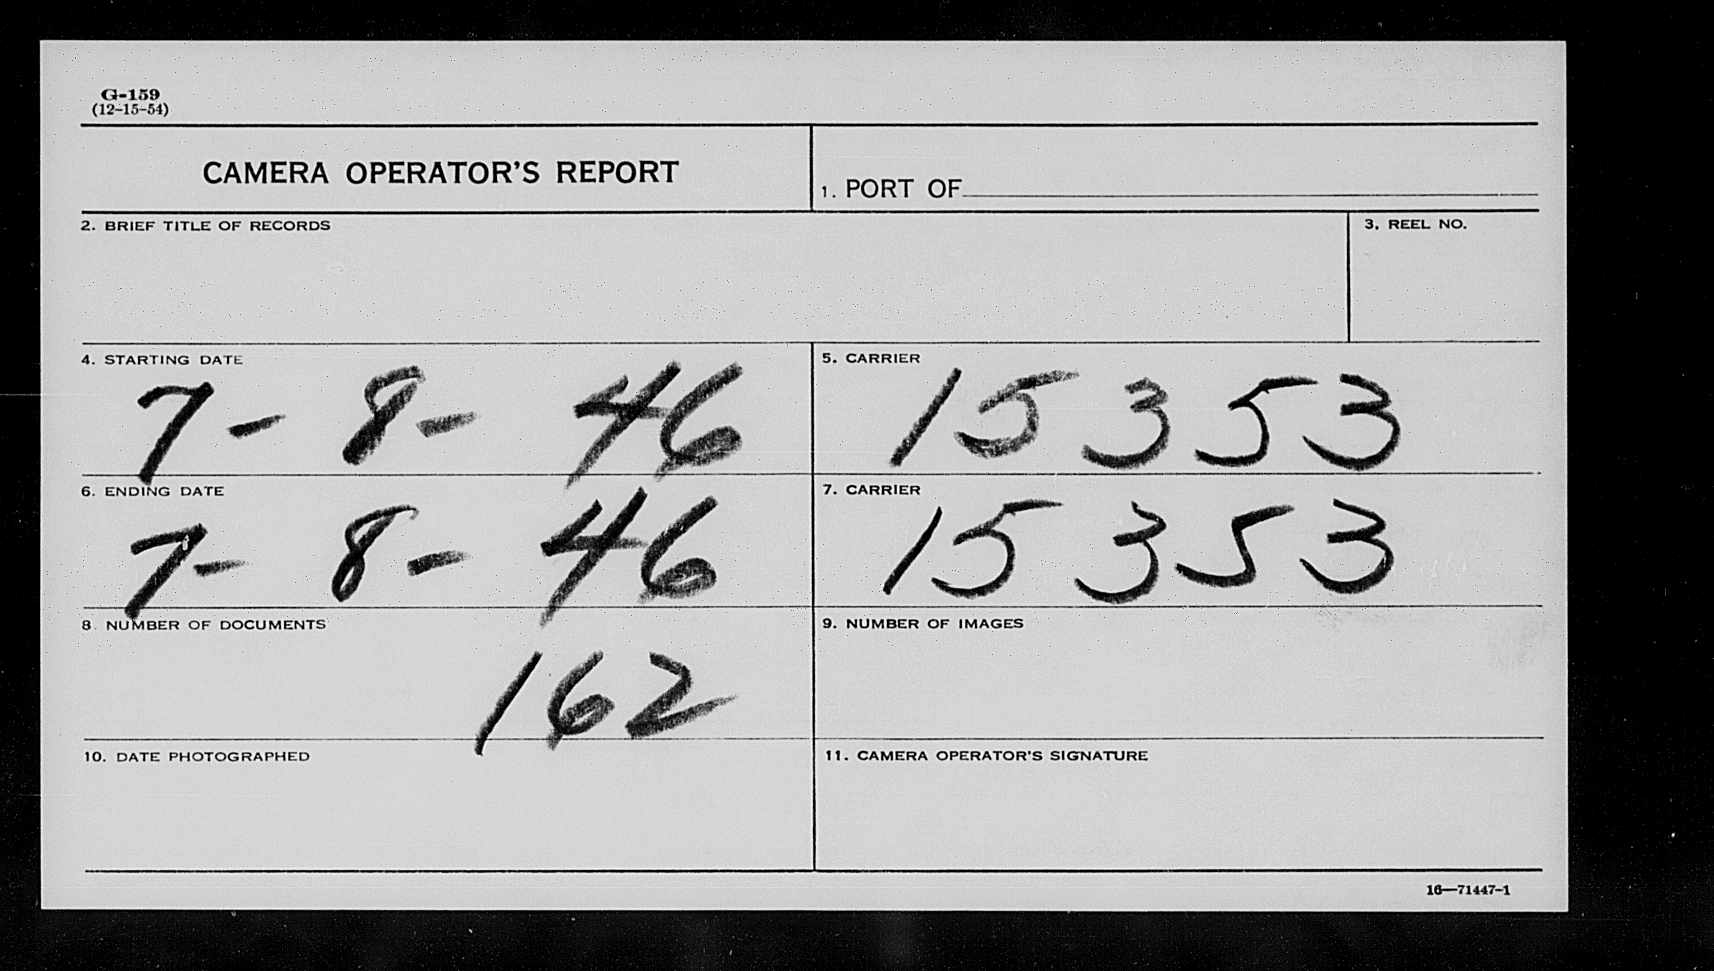 G-159
(12-15-54)
CAMERA OPERATOR'S REPORT
1. PORT OF
2. BRIEF TITLE OF RECORDS
3. REEL NO.
4. STARTING DATE
7-8-46
5. CARRIER
15353
6. ENDING DATE
7-8-46
7. CARRIER
15353
8. NUMBER OF DOCUMENTS
162
9. NUMBER OF IMAGES
10. DATE PHOTOGRAPHED
11. CAMERA OPERATOR'S SIGNATURE
16—71447-1